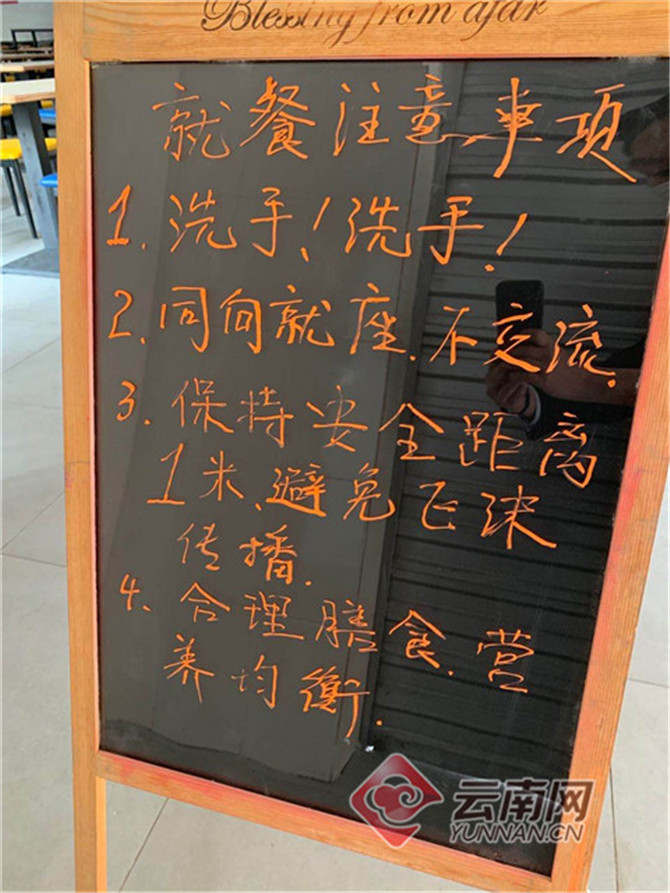 Blessing from afar
就餐注意事项
1. 洗手！洗手！
2. 同向就座.不交流.
3. 保持安全距离
1米、避免飞沫
传播.
4、合理膳食.营
养均衡.
云南网
YUNNAN.CN